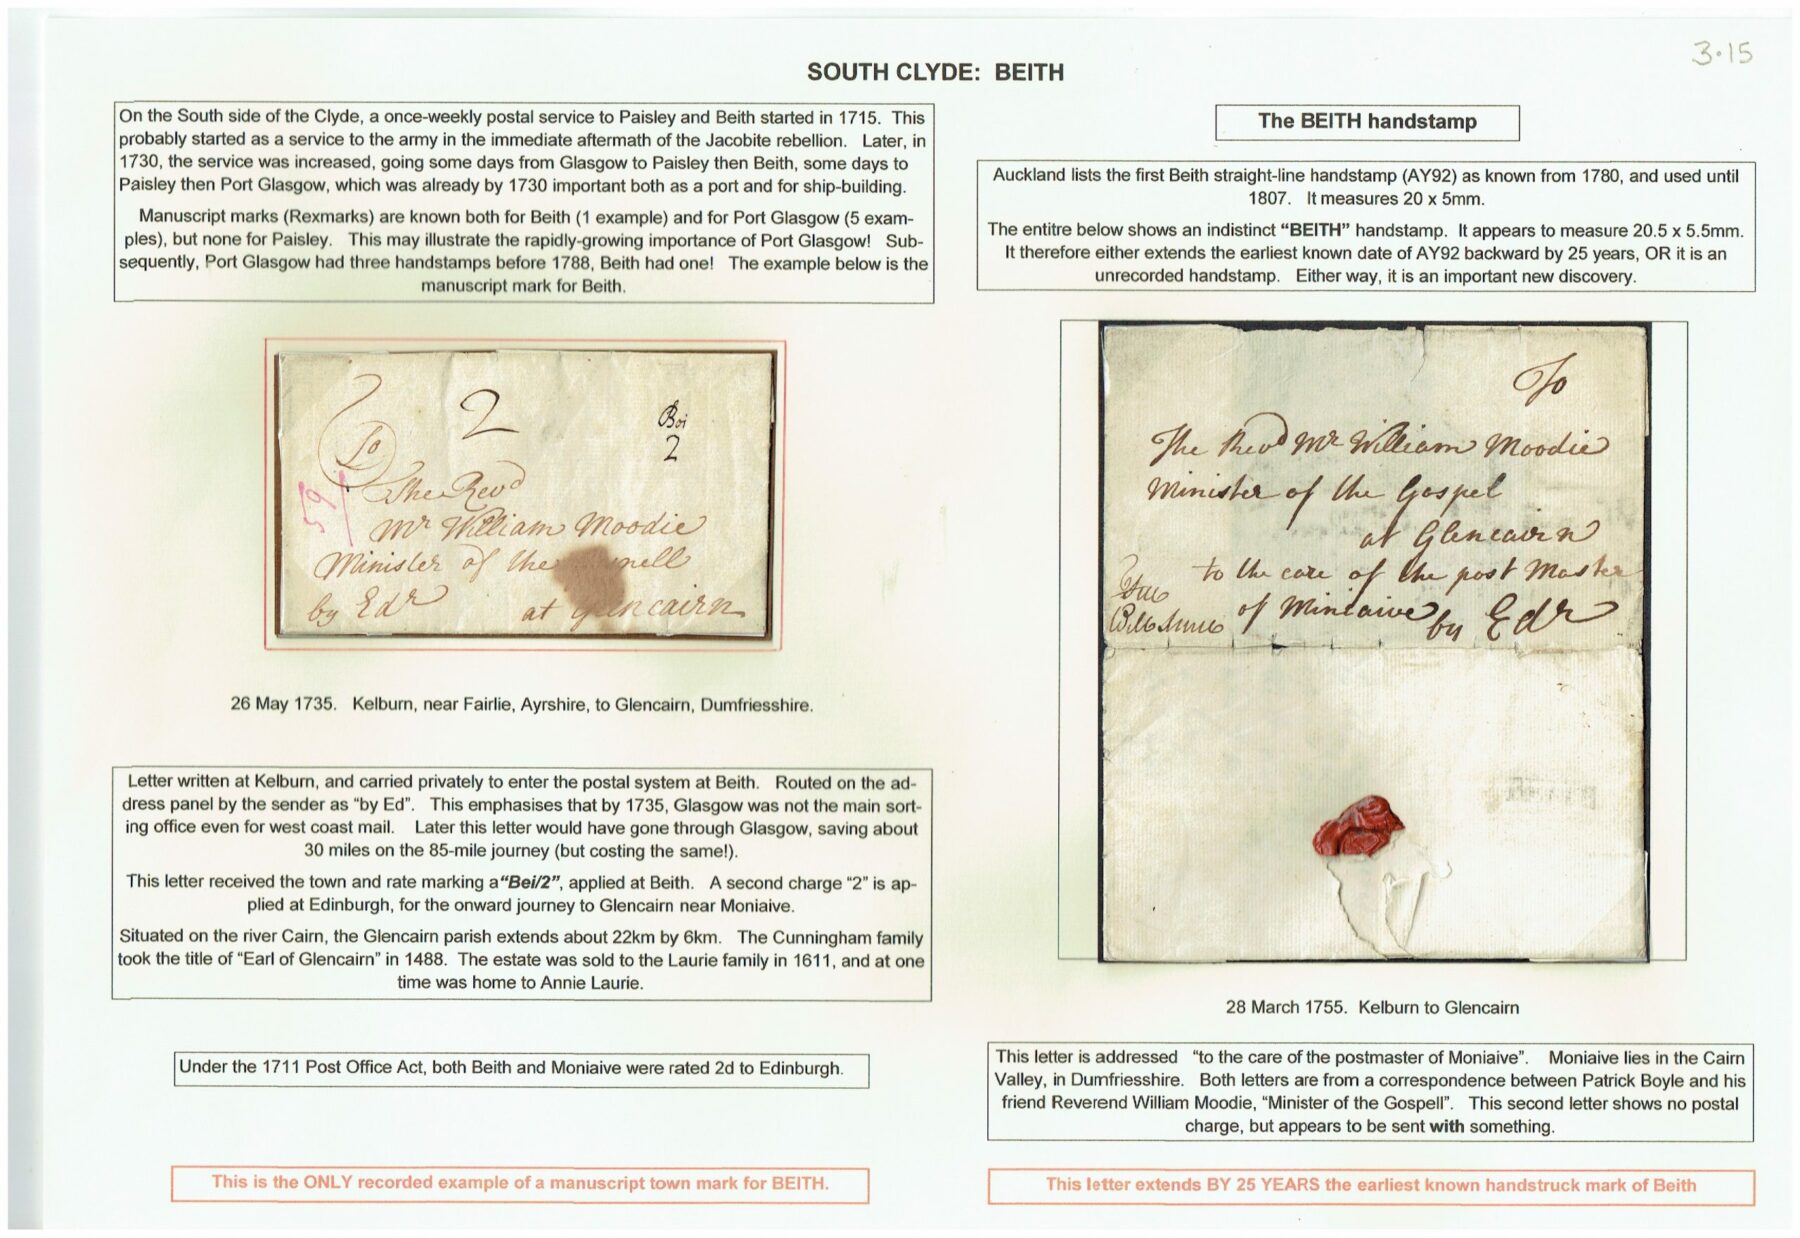 3·15
SOUTH CLYDE:  BEITH
On the South side of the Clyde, a once-weekly postal service to Paisley and Beith started in 1715.  This
probably started as a service to the army in the immediate aftermath of the Jacobite rebellion.   Later, in
1730, the service was increased, going some days from Glasgow to Paisley then Beith, some days to
Paisley then Port Glasgow, which was already by 1730 important both as a port and for ship-building.
Manuscript marks (Rexmarks) are known both for Beith (1 example) and for Port Glasgow (5 exam-
ples), but none for Paisley.   This may illustrate the rapidly-growing importance of Port Glasgow!   Sub-
sequently, Port Glasgow had three handstamps before 1788, Beith had one!   The example below is the
manuscript mark for Beith.
2
Bei
2
To
59
The Revd
Mr William Moodie
Minister of the
by Edr at Glencairn
26 May 1735.   Kelburn, near Fairlie, Ayrshire, to Glencairn, Dumfriesshire.
Letter written at Kelburn, and carried privately to enter the postal system at Beith.   Routed on the ad-
dress panel by the sender as "by Ed".   This emphasises that by 1735, Glasgow was not the main sort-
ing office even for west coast mail.    Later this letter would have gone through Glasgow, saving about
30 miles on the 85-mile journey (but costing the same!).
This letter received the town and rate marking a"Bei/2", applied at Beith.   A second charge "2" is ap-
plied at Edinburgh, for the onward journey to Glencairn near Moniaive.
Situated on the river Cairn, the Glencairn parish extends about 22km by 6km.   The Cunningham family
took the title of "Earl of Glencairn" in 1488.  The estate was sold to the Laurie family in 1611, and at one
time was home to Annie Laurie.
Under the 1711 Post Office Act, both Beith and Moniaive were rated 2d to Edinburgh.
This is the ONLY recorded example of a manuscript town mark for BEITH.
The BEITH handstamp
Auckland lists the first Beith straight-line handstamp (AY92) as known from 1780, and used until
1807.   It measures 20 x 5mm.
The entitre below shows an indistinct "BEITH" handstamp.   It appears to measure 20.5 x 5.5mm.
It therefore either extends the earliest known date of AY92 backward by 25 years, OR it is an
unrecorded handstamp.   Either way, it is an important new discovery.
To
The Revd Mr William Moodie
Minister of the Gospel
at Glencairn
to the care of the post Master
of Miniaive by Edr
28 March 1755.  Kelburn to Glencairn
This letter is addressed   "to the care of the postmaster of Moniaive".    Moniaive lies in the Cairn
Valley, in Dumfriesshire.   Both letters are from a correspondence between Patrick Boyle and his
friend Reverend William Moodie, "Minister of the Gospell".   This second letter shows no postal
charge, but appears to be sent with something.
This letter extends BY 25 YEARS the earliest known handstruck mark of Beith